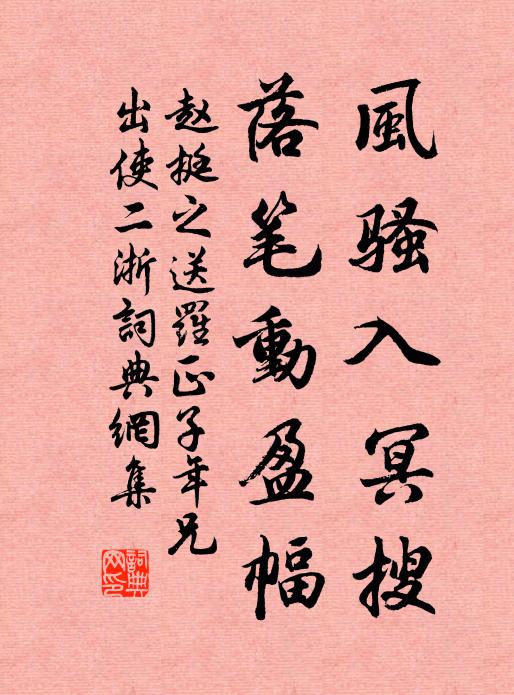 風骚入冥搜
落笔動盈幅
赵挺之送羅正子年兄
出使二浙詞典網集
詞典网印